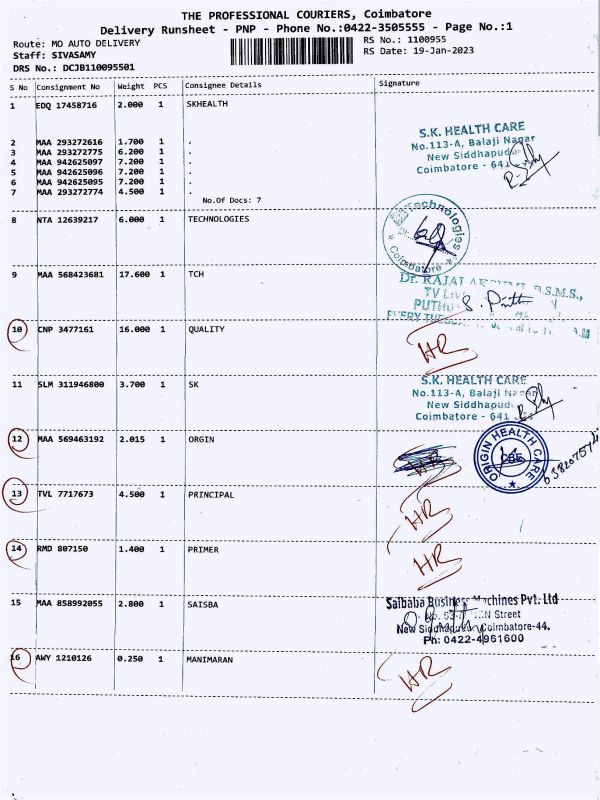 THE PROFESSIONAL COURIERS, Coimbatore
Delivery Runsheet - PNP - Phone No.:0422-3505555 - Page No.:1
Route: MO AUTO DELIVERY RS No.: 1100955
Staff: SIVASAMY RS Date: 19-Jan-2023
DRS No.: DCJB110095501
S No Consignment No Weight PCS Consignee Details Signature
1 EDQ 17458716 2.000 1 SKHEALTH
S.K. HEALTH CARE
No.113-A, Balaji Nagar
2 MAA 293272616 1.700 1 .
New Siddhapudur
3 MAA 293272775 6.200 1 .
4 MAA 942625097 7.200 1 .
Coimbatore - 641
5 MAA 942625096 7.200 1 .
6 MAA 942625095 7.200 1 .
7 MAA 293272774 4.500 1 .
No.Of Docs: 7
8 NTA 12639217 6.000 1 TECHNOLOGIES
Technologies
Coimbatore
9 MAA 568423681 17.600 1 TCH
Dr. RAJAI B.S.M.S.,
10 CNP 3477161 16.000 1 QUALITY HR
11 SLM 311946800 3.700 1 SK
S.K. HEALTH CARE
No.113-A, Balaji Nagar
New Siddhapud
Coimbatore - 641
12 MAA 569463192 2.015 1 ORGIN
ORIGIN HEALTH CARE
CBE
13 TVL 7717673 4.500 1 PRINCIPAL HR
14 RMD 807150 1.400 1 PRIMER HR
15 MAA 858992055 2.800 1 SAISBA
Saibaba Business Machines Pvt. Ltd
Street
New Siddhapudur, Coimbatore-44.
Ph: 0422-4961600
16 AWY 1210126 0.250 1 MANIMARAN HR